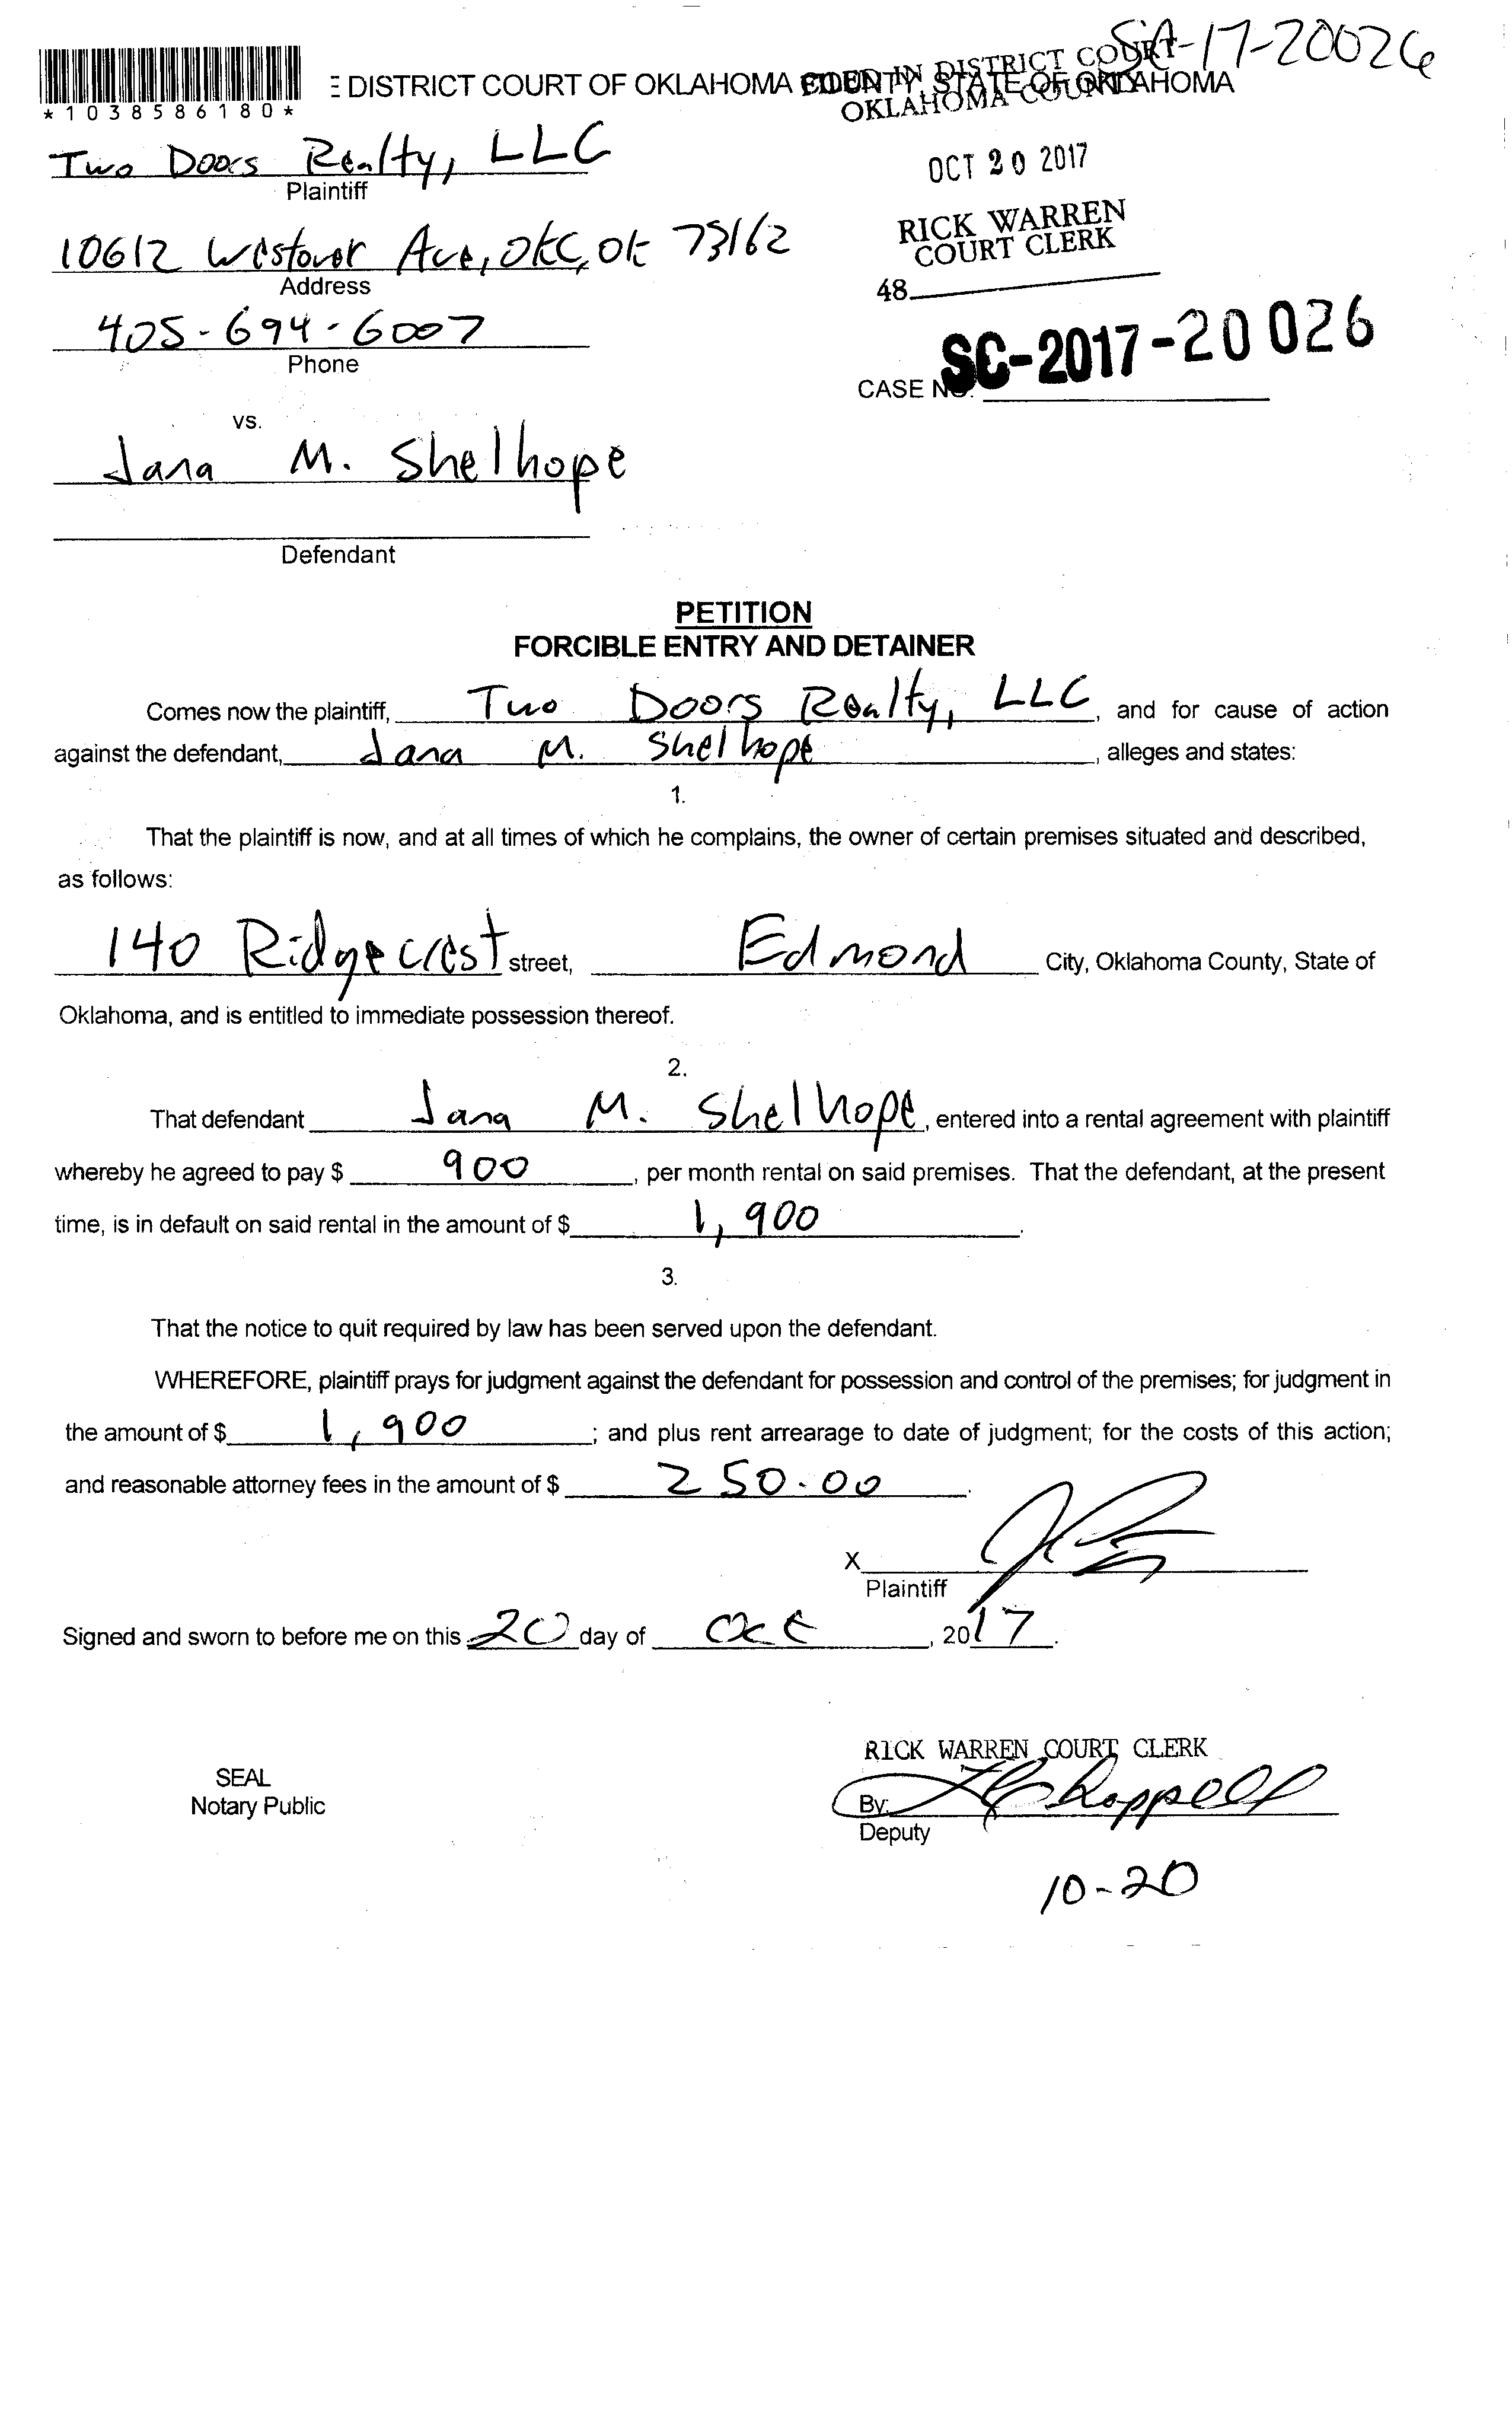 SC-17-20026
* 1 0 3 8 5 8 6 1 8 0 *
E DISTRICT COURT OF OKLAHOMA COUNTY, STATE OF OKLAHOMA
FILED IN DISTRICT COURT
OKLAHOMA COUNTY
OCT 20 2017
RICK WARREN
COURT CLERK
48
Two Doors Realty, LLC
Plaintiff
10612 Westover Ave, OKC, OK 73162
Address
405-694-6007
Phone
CASE NO. SC-2017-20026
vs.
Jana M. Shelhope
Defendant
PETITION
FORCIBLE ENTRY AND DETAINER
Comes now the plaintiff, Two Doors Realty, LLC, and for cause of action
against the defendant, Jana M. Shelhope, alleges and states:
1.
That the plaintiff is now, and at all times of which he complains, the owner of certain premises situated and described,
as follows:
140 Ridgecrest street, Edmond City, Oklahoma County, State of
Oklahoma, and is entitled to immediate possession thereof.
2.
That defendant Jana M. Shelhope, entered into a rental agreement with plaintiff
whereby he agreed to pay $ 900, per month rental on said premises. That the defendant, at the present
time, is in default on said rental in the amount of $ 1,900.
3.
That the notice to quit required by law has been served upon the defendant.
WHEREFORE, plaintiff prays for judgment against the defendant for possession and control of the premises; for judgment in
the amount of $ 1,900; and plus rent arrearage to date of judgment; for the costs of this action;
and reasonable attorney fees in the amount of $ 250.00.
X
Plaintiff
Signed and sworn to before me on this 20 day of Oct, 2017.
RICK WARREN COURT CLERK
SEAL
Notary Public
By: Chappell
Deputy
10-20